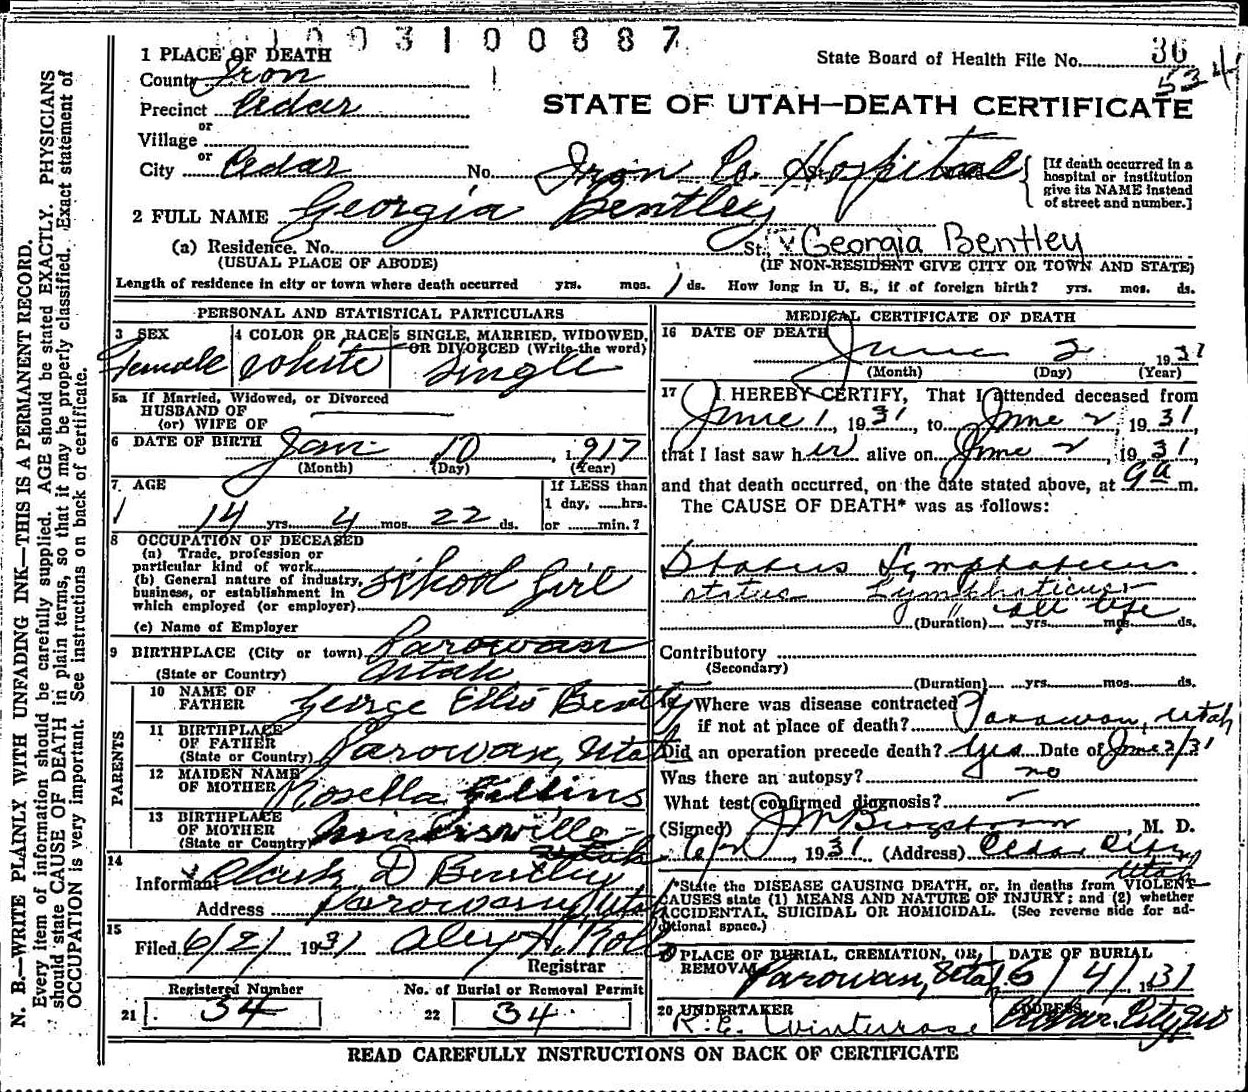 1003100887
1 PLACE OF DEATH
State Board of Health File No. 36
534
County Iron
Precinct Cedar
STATE OF UTAH—DEATH CERTIFICATE
or
Village
or
City Cedar No. Iron Co. Hospital
[If death occurred in a hospital or institution give its NAME instead of street and number.]
2 FULL NAME Georgia Bentley
(a) Residence. No. St. Georgia Bentley
(USUAL PLACE OF ABODE) (IF NON-RESIDENT GIVE CITY OR TOWN AND STATE)
Length of residence in city or town where death occurred yrs. mos. 1 ds. How long in U. S., if of foreign birth? yrs. mos. ds.
PERSONAL AND STATISTICAL PARTICULARS
3 SEX
Female
4 COLOR OR RACE
white
5 SINGLE, MARRIED, WIDOWED, OR DIVORCED (Write the word)
single
5a If Married, Widowed, or Divorced
HUSBAND OF
(or) WIFE OF
6 DATE OF BIRTH Jan 10, 1917
(Month) (Day) (Year)
7 AGE
14 yrs. 4 mos. 22 ds.
If LESS than
1 day, ......hrs.
or ......min.?
8 OCCUPATION OF DECEASED
(a) Trade, profession or
particular kind of work
(b) General nature of industry,
business, or establishment in
which employed (or employer)
school girl
(c) Name of Employer
9 BIRTHPLACE (City or town) Parowan
(State or Country) Utah
PARENTS
10 NAME OF FATHER George Ellis Bently
11 BIRTHPLACE OF FATHER (State or Country) Parowan, Utah
12 MAIDEN NAME OF MOTHER Rosella Gillins
13 BIRTHPLACE OF MOTHER (State or Country) Minersville Utah
14
Informant Clark D Bentley
Address Parowan, Utah
15
Filed 6/2/ 1931
Registrar
Registered Number
21 34
No. of Burial or Removal Permit
22 34
MEDICAL CERTIFICATE OF DEATH
16 DATE OF DEATH
June 2 1931
(Month) (Day) (Year)
17 I HEREBY CERTIFY, That I attended deceased from
June 1, 1931, to June 2, 1931
that I last saw her alive on June 2, 1931,
and that death occurred, on the date stated above, at 9a m.
The CAUSE OF DEATH* was as follows:
Status Lymphaticus
status Lymphaticus
" all life
(Duration) yrs. mos. ds.
Contributory
(Secondary)
(Duration) yrs. mos. ds.
Where was disease contracted
if not at place of death? Parowan, Utah
Did an operation precede death? yes Date of June 2/31
Was there an autopsy? no
What test confirmed diagnosis?
(Signed) J M Bergstrom, M. D.
6/2, 1931 (Address) Cedar City Utah
*State the DISEASE CAUSING DEATH, or, in deaths from VIOLENT
CAUSES state (1) MEANS AND NATURE OF INJURY; and (2) whether
ACCIDENTAL, SUICIDAL OR HOMICIDAL. (See reverse side for ad-
ditional space.)
PLACE OF BURIAL, CREMATION, OR REMOVAL
Parowan, Utah
DATE OF BURIAL
6/4/1931
20 UNDERTAKER
R. E. Winterrose
ADDRESS
READ CAREFULLY INSTRUCTIONS ON BACK OF CERTIFICATE
N. B.—WRITE PLAINLY WITH UNFADING INK—THIS IS A PERMANENT RECORD.
Every item of information should be carefully supplied. AGE should be stated EXACTLY. PHYSICIANS
should state CAUSE OF DEATH in plain terms, so that it may be properly classified. Exact statement of
OCCUPATION is very important. See instructions on back of certificate.